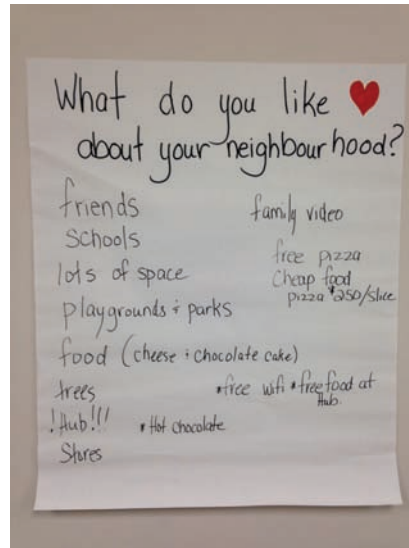 What do you like ♥
about your neighbourhood?
friends
schools
lots of space
playgrounds + parks
food (cheese + chocolate cake)
trees
!Hub!!! * Hot chocolate
Stores
family video
free pizza
cheap food
pizza $250/slice
*free wifi *free food at
Hub